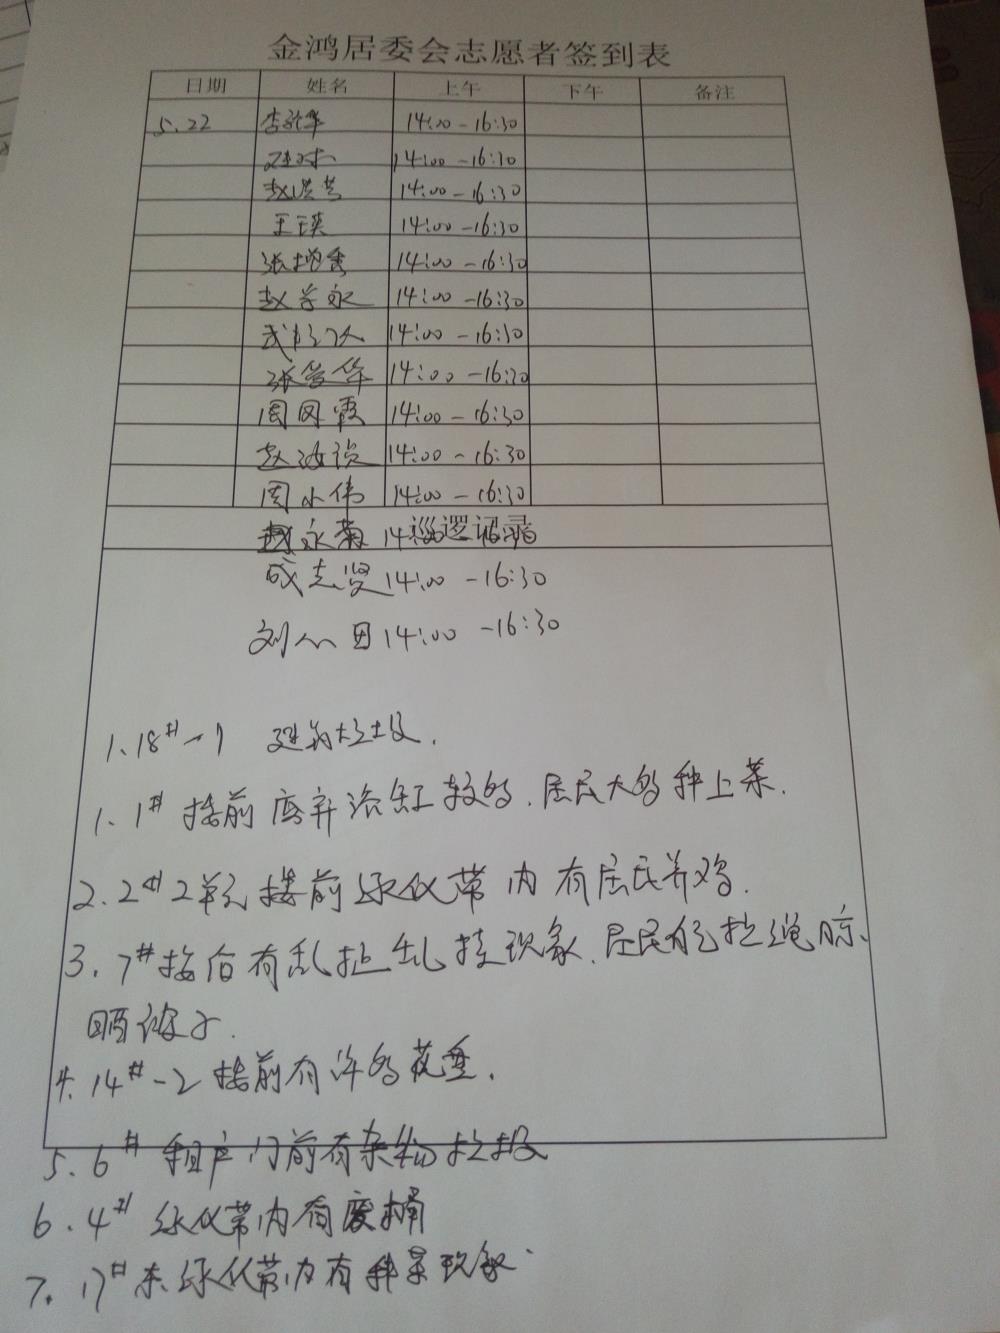 金鸿居委会志愿者签到表
日期 姓名 上午 下午 备注
5.22 14:00-16:30
14:00-16:30
14:00-16:30
王瑛 14:00-16:30
张增秀 14:00-16:30
赵学永 14:00-16:30
14:00-16:30
张爱华 14:00-16:30
周风霞 14:00-16:30
赵 14:00-16:30
周小伟 14:00-16:30
赵永菊 14 巡逻记录
成志贤 14:00-16:30
刘 14:00-16:30
1、18#-1 建筑垃圾.
1、1#楼前废弃浴缸较多、居民大多种上菜.
2、2#2单元楼前绿化带内有居民养鸡.
3、7#楼后有乱拉乱挂现象、居民自拉绳晾、
晒被子.
4、14#-2楼前有许多花盆.
5、6#租户门前有杂物垃圾
6、4#绿化带内有废桶
7、17#东绿化带内有种菜现象.